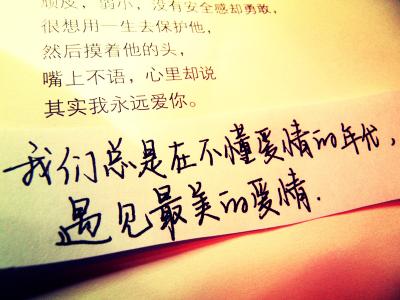 顽皮，弱小，没有安全感却勇敢，
很想用一生去保护他，
然后摸着他的头，
嘴上不语，心里却说
其实我永远爱你。
我们总是在不懂爱情的年代，
遇见最美的爱情.